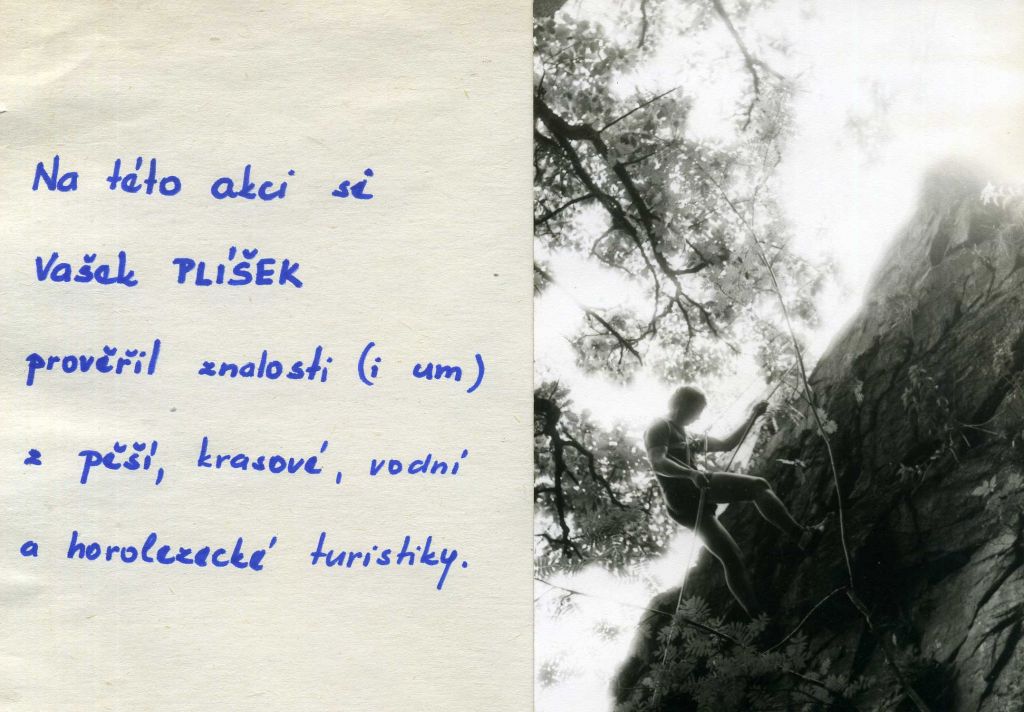 Na této akci si
Vašek PLÍŠEK
prověřil znalosti (i um)
z pěší, krasové, vodní
a horolezecké turistiky.